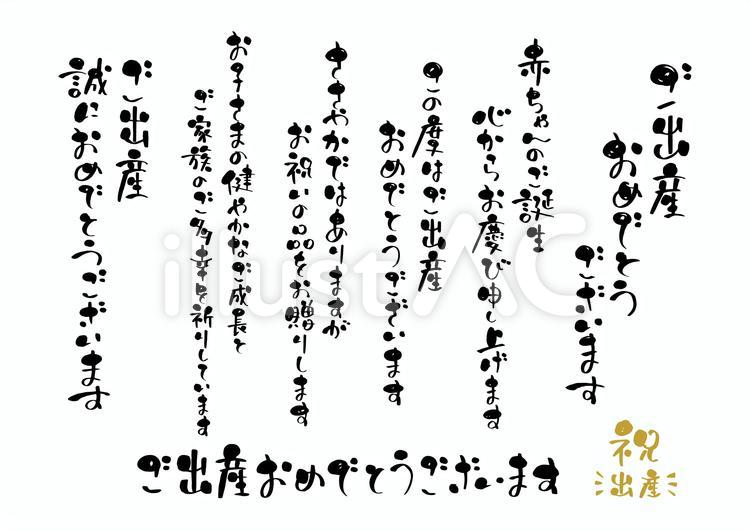 ご出産
おめでとう
ございます
赤ちゃんのご誕生
心からお慶び申し上げます
この度はご出産
おめでとうございます
ささやかではありますが
お祝いの品をお贈りします
お子さまの健やかなご成長と
ご家族のご多幸を祈りしています
ご出産
誠におめでとうございます
ご出産おめでとうございます
祝
出産
illustAC